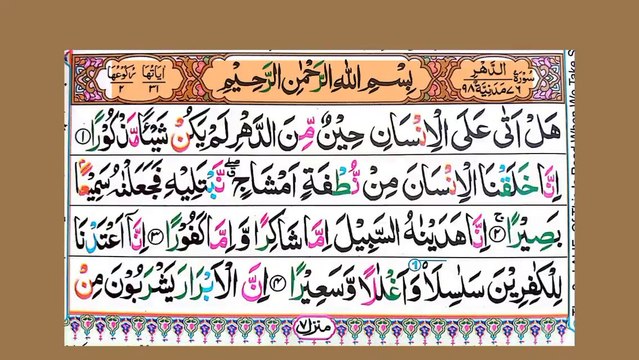 سُوْرَةُ الدَّهْرِ مَدَنِيَّةٌ ٧٦ ٩٨
بِسْمِ اللّٰهِ الرَّحْمٰنِ الرَّحِيْمِ
اٰيَاتُهَا ٣١ رُكُوْعُهَا ٢
هَلْ اَتٰى عَلَى الْاِنْسَانِ حِيْنٌ مِّنَ الدَّهْرِ لَمْ يَكُنْ شَيْـًٔا مَّذْكُوْرًا ۝١
اِنَّا خَلَقْنَا الْاِنْسَانَ مِنْ نُّطْفَةٍ اَمْشَاجٍ ۖۗ نَّبْتَلِيْهِ فَجَعَلْنٰهُ سَمِيْعًۢا
بَصِيْرًا ۝٢ اِنَّا هَدَيْنٰهُ السَّبِيْلَ اِمَّا شَاكِرًا وَّاِمَّا كَفُوْرًا ۝٣ اِنَّاۤ اَعْتَدْنَا
لِلْكٰفِرِيْنَ سَلٰسِلَا۟ وَاَغْلٰلًا وَّسَعِيْرًا ۝٤ اِنَّ الْاَبْرَارَ يَشْرَبُوْنَ مِنْ
منزل ٧